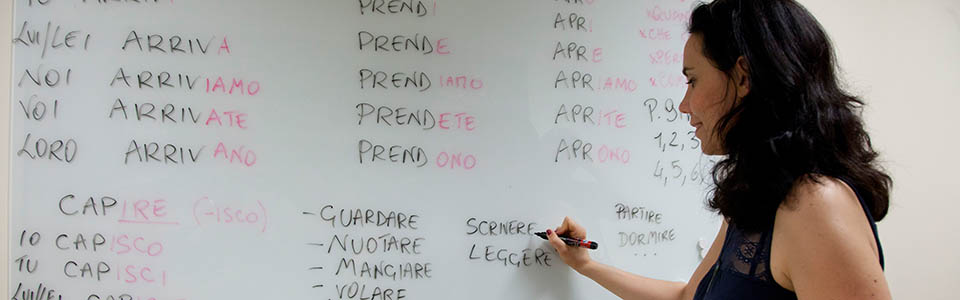 PRENDI
APRI
LUI/LEI ARRIVA PRENDE APRE
NOI ARRIVIAMO PRENDIAMO APRIAMO
VOI ARRIVATE PRENDETE APRITE
LORO ARRIVANO PRENDONO APRONO
xCHE
P.
1,2,3
4,5,6
CAPIRE (-ISCO)
IO CAPISCO
TU CAPISCI
LUI/LEI
- GUARDARE
- NUOTARE
- MANGIARE
- VOLARE
SCRIVERE
LEGGERE
PARTIRE
DORMIRE
...